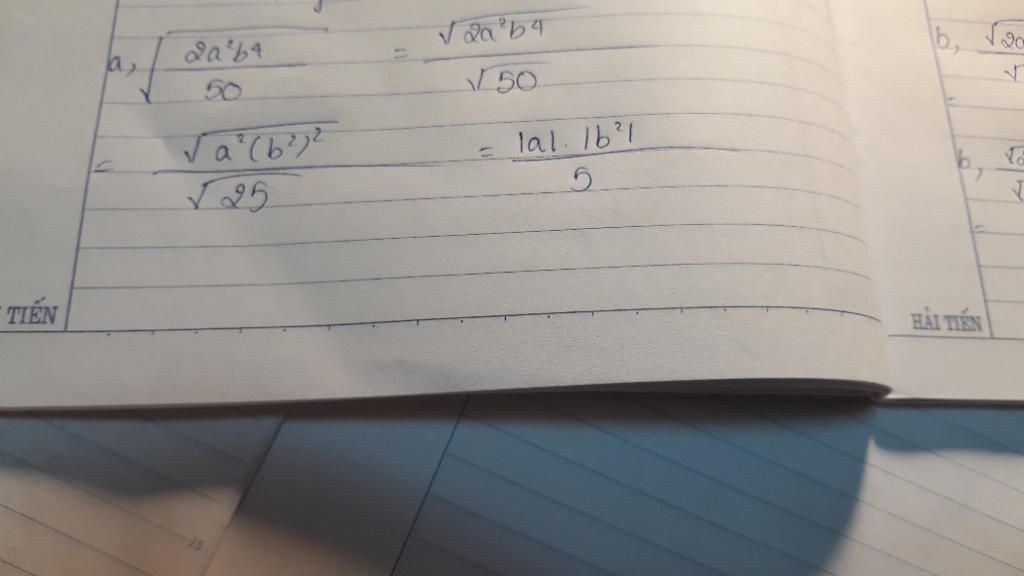 a, √(2a²b⁴/50) = √(2a²b⁴)/√50
= √(a²(b²)²)/√25 = |a|.|b²|/5
TIẾN
b, √2a
=
b, √2
=
HẢI TIẾN
25